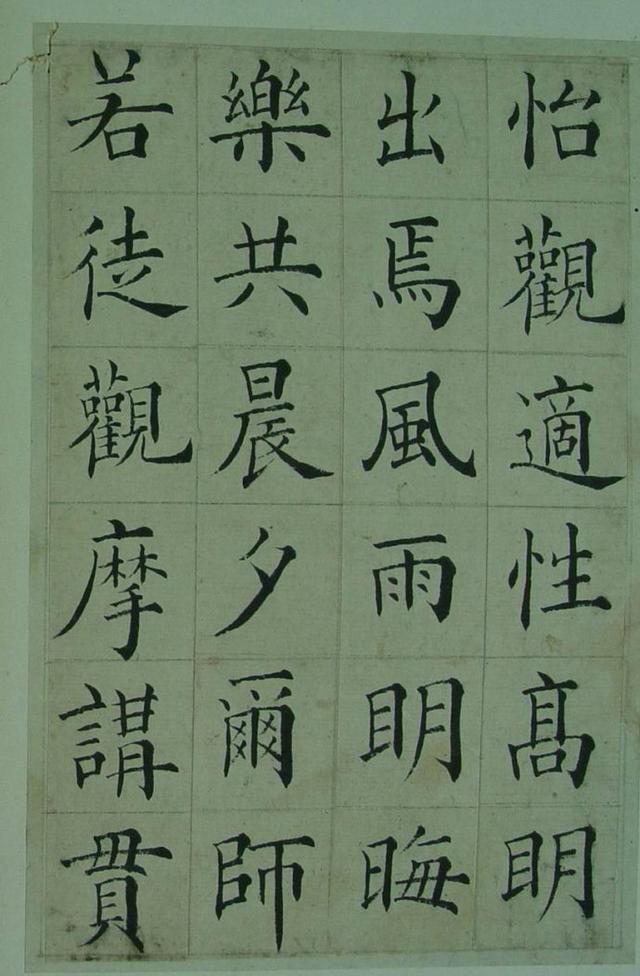 怡觀適性高明
出焉風雨明晦
樂共晨夕爾師
若徒觀摩講貫